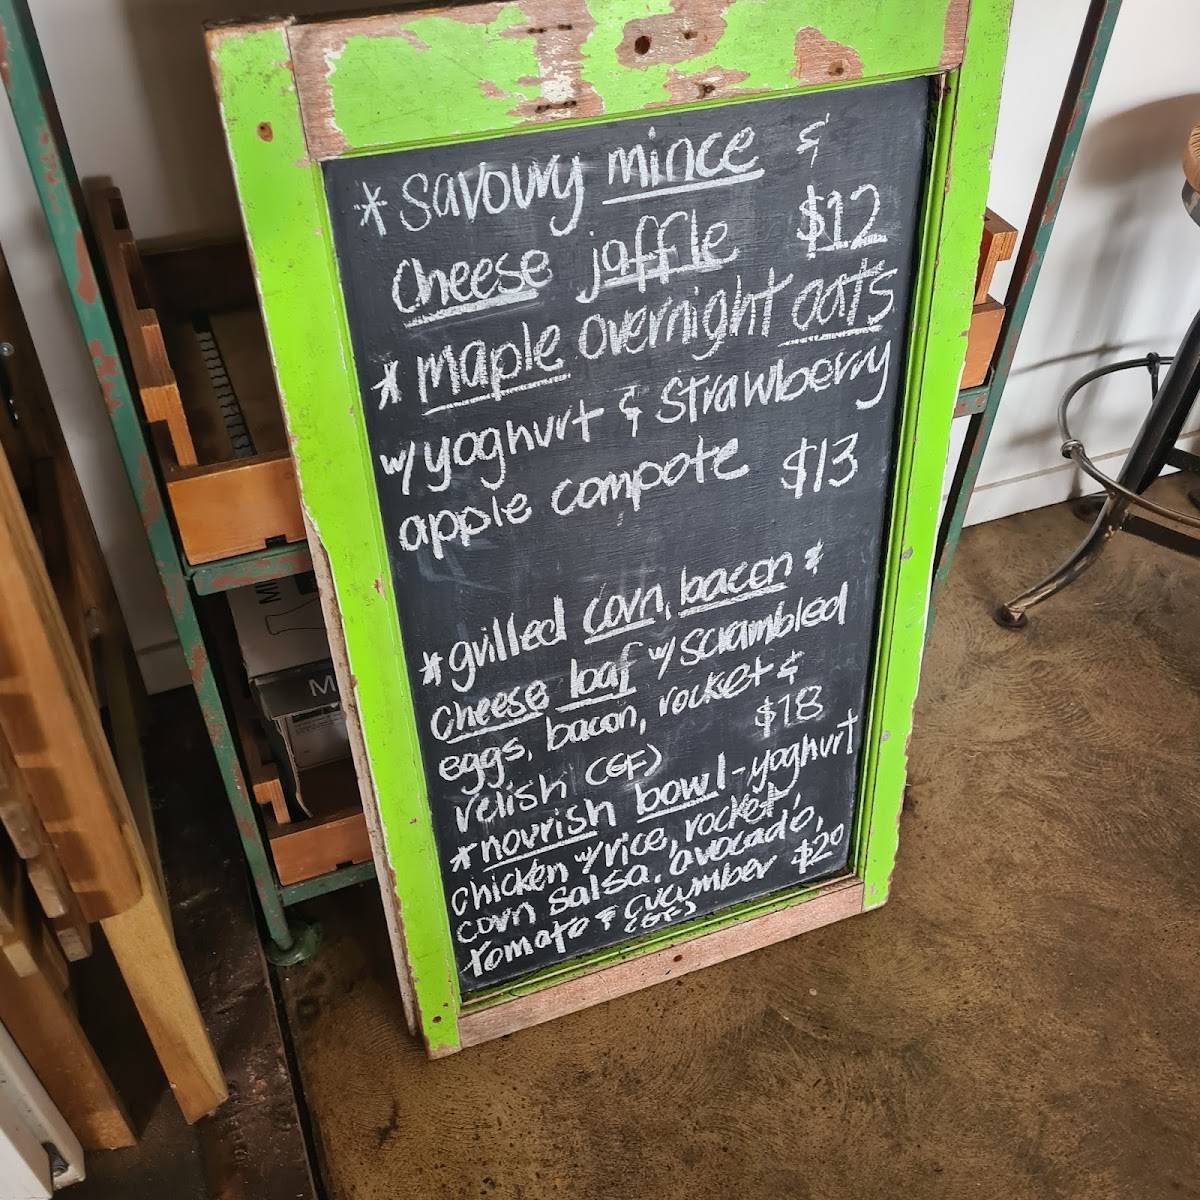 * savoury mince &
cheese jaffle $12
* maple overnight oats
w/ yoghurt & strawberry
apple compote $13
* grilled corn, bacon &
cheese loaf w/ scrambled
eggs, bacon, rocket &
relish (GF) $18
* nourish bowl - yoghurt
chicken w/ rice, rocket,
corn salsa, avocado,
tomato & cucumber $20
(GF)
M
M